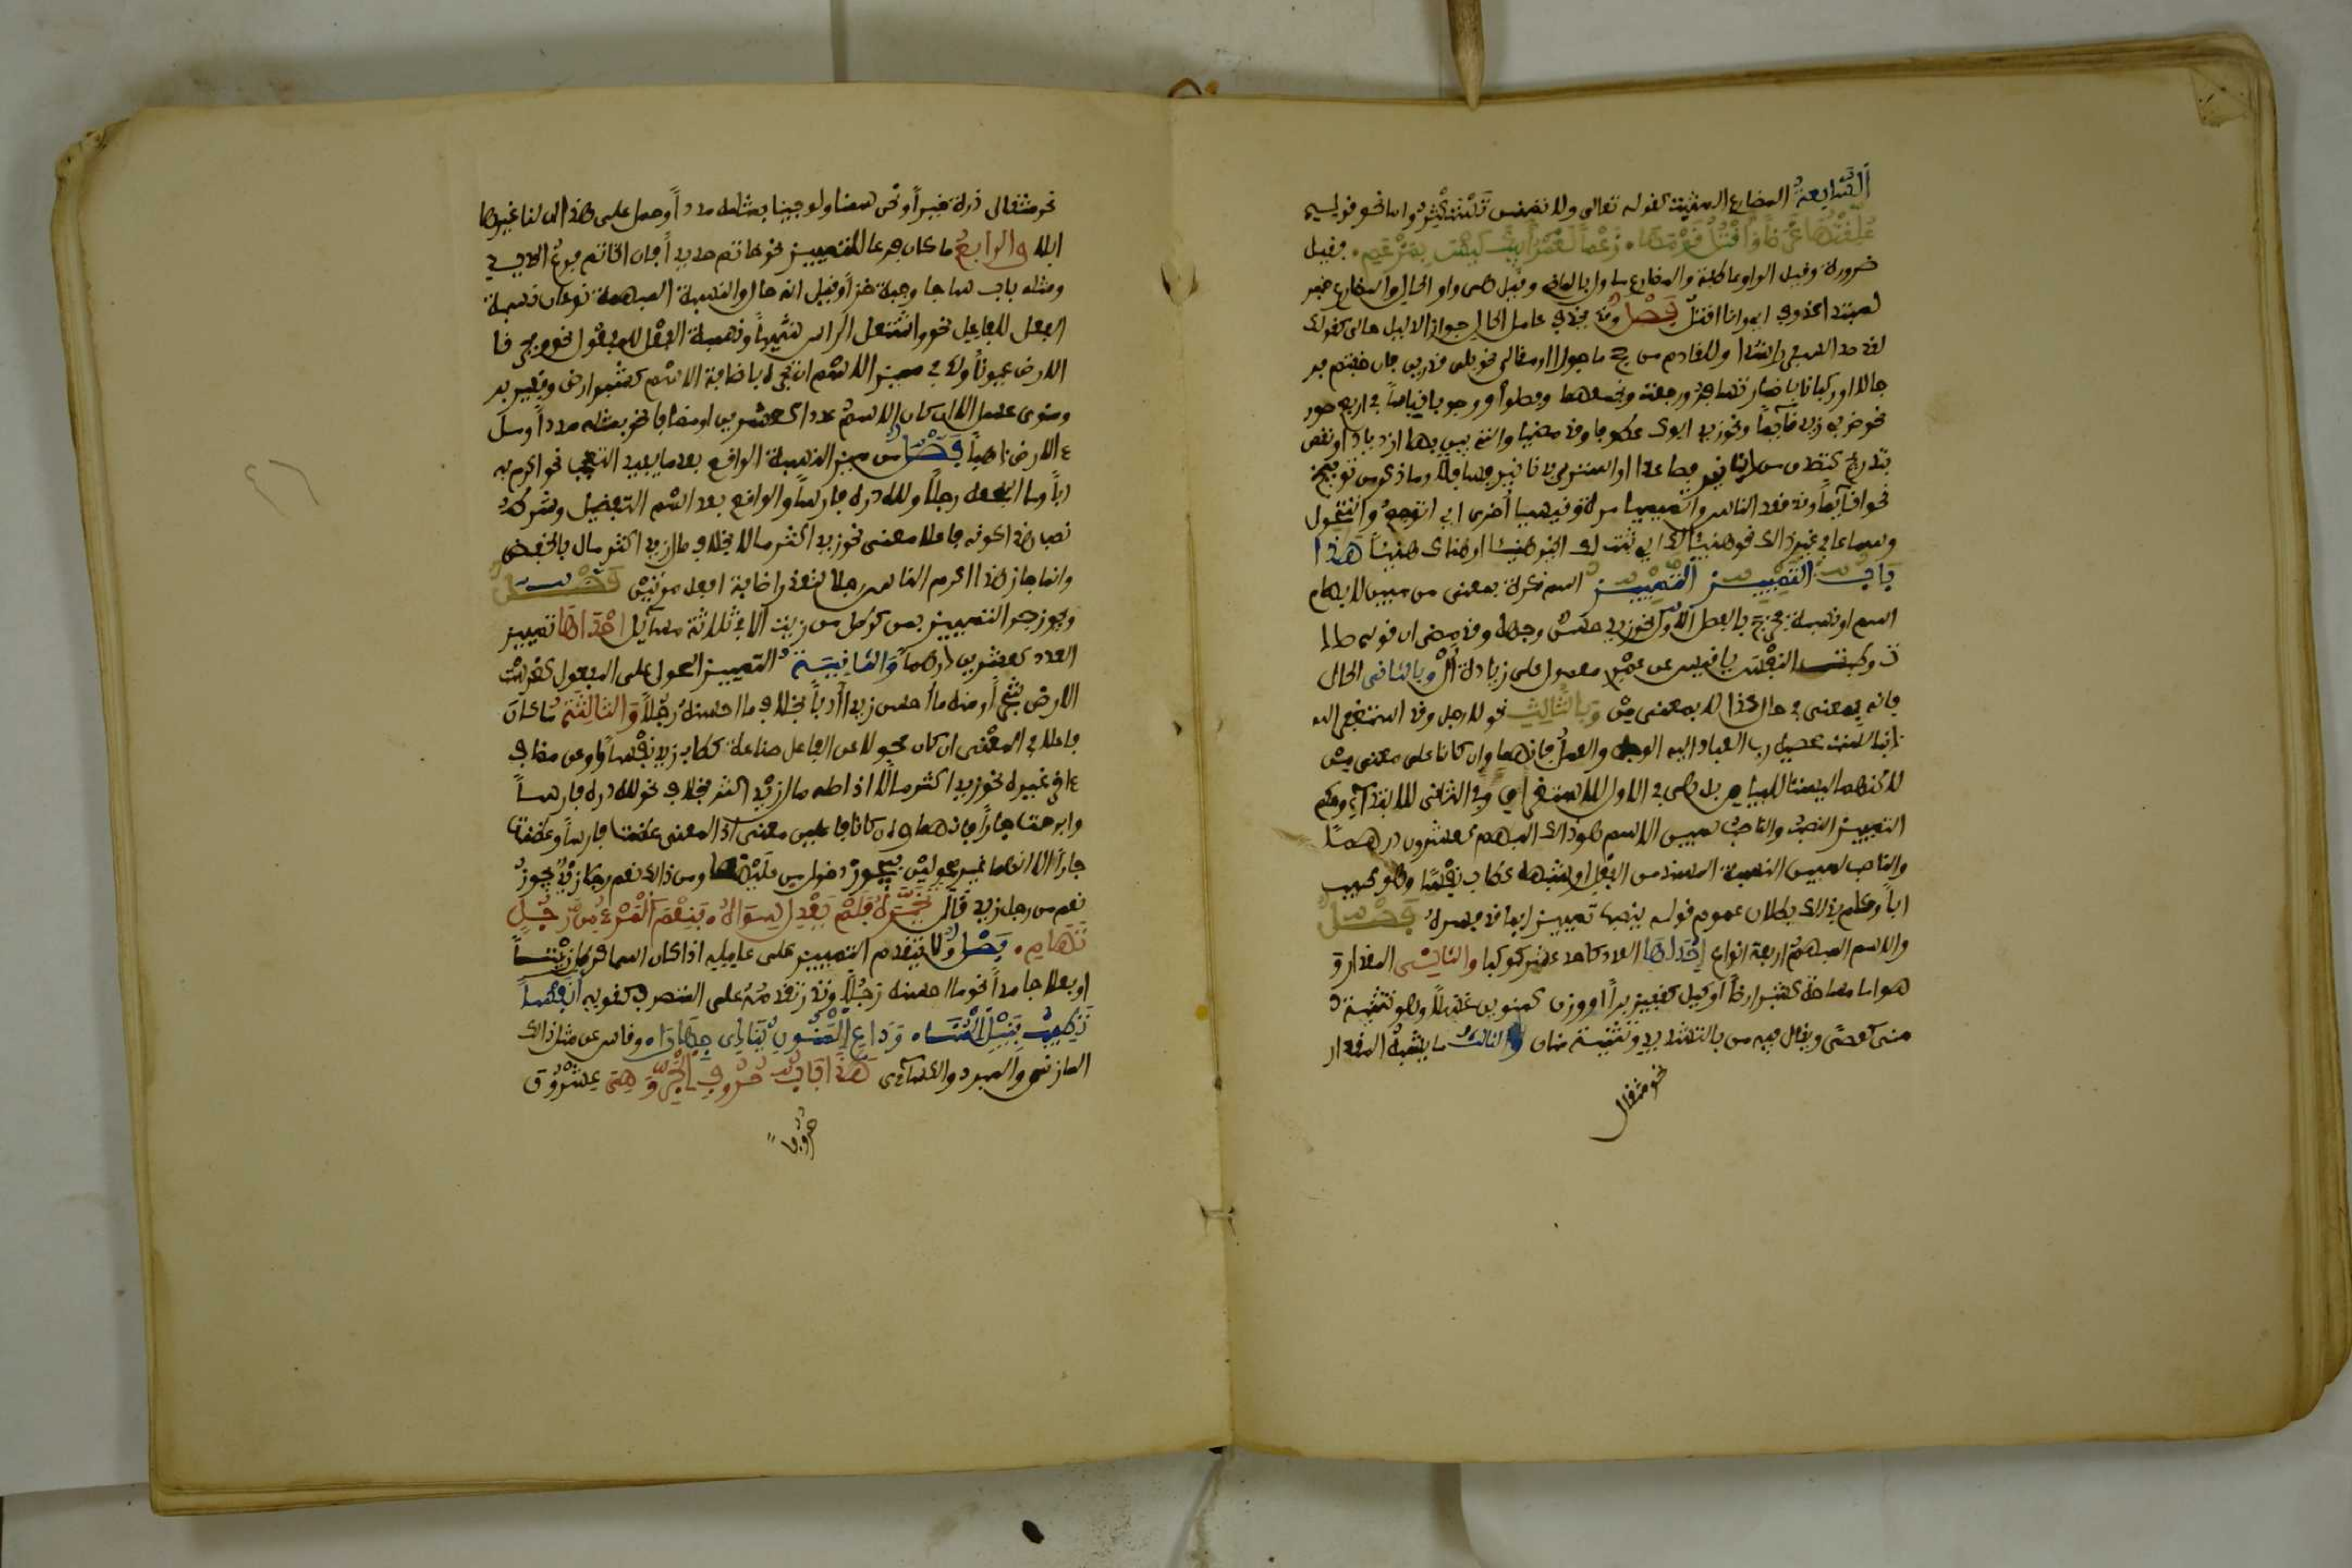 السابعة المضارع المثبت كقوله تعالى ولا تمنن تستكثر واما نحو قوله
علقتها عرضا واقتل قومها زعما لعمر ابيك ليس بمزعم فقيل
ضرورة وقيل الواو عاطفة والمضارع ماول بالماضي وقيل هي واو الحال والمضارع خبر
لمبتدا محذوف اي وانا اقتل فصل وقد يحذف عامل الحال جوازا لدليل حالي كقولك
لقاصد السفر راشدا وللقادم من حج ماجورا او مقالي نحو بلى قادرين فان خفتم فر
جالا او ركبانا باضمار نجمعها وصلوا ووجوبا قياسا في اربع صور
نحو ضربي زيدا قائما ونحو زيد ابوك عطوفا وقد مضتا والتي يبين بها ازدياد او نقص
بتدريج كتصدق بدينار فصاعدا او اشتره بدينار فسافلا وما ذكر من توبيخ
نحو اقائما وقد قعد الناس واتميميا مرة وقيسيا اخرى اي اتوجد واتتحول
وسماعا في غير ذلك نحو هنيئا لك اي ثبت لك الخير هنيئا او هناك هنيئا هذا
باب التمييز التمييز اسم نكرة بمعنى من مبين لابهام
اسم او نسبة فخرج بالفصل الاول نحو زيد حسن وجهه وقد مضى ان قوله صدد
ت وطبت النفس يا قيس عن عمرو محمول على زيادة ال وبالثاني الحال
فانه بمعنى في حال كذا لا بمعنى من وبالثالث نحو لا رجل ونحو استغفر الله
ذنبا لست محصيه رب العباد اليه الوجه والعمل فانهما وان كانا على معنى من
لاكنهما ليستا للبيان بل هي في الاول للاستغراق وفي الثاني للابتداء وحكم
التمييز النصب والناصب لمبين الاسم هو ذلك المبهم كعشرون درهما
والناصب لمبين النسبة المسند من الفعل او شبهه كطاب نفسا وهو طيب
ابا وعلم بذلك بطلان عموم قوله ينصب تمييزا بما قد فسره فصل
والاسم المبهم اربعة انواع احدها العدد كاحد عشر كوكبا والثاني المقدار و
هو اما مساحة كشبر ارضا او كيل كقفيز برا او وزن كمنوين عسلا وهو تثنية
منى كعصى ويقال فيه من بالتشديد وتثنيته منان والثالث ما يشبه المقدار
نحو مثقال
نحو مثقال ذرة خيرا ونحي سمنا ولو جئنا بمثله مددا وحمل على هذا ان لنا غيرها
ابلا والرابع ما كان فرعا للتمييز نحو خاتم حديدا فان الخاتم فرع الحديد
ومثله باب ساجا وجبة خزا وقيل انه حال والنسبة المبهمة نوعان نسبة
الفعل للفاعل نحو واشتعل الراس شيبا ونسبة الفعل للمفعول نحو وفجرنا
الارض عيونا ولك في مميز الاسم ان تجره باضافة الاسم كشبر ارض وقفيز بر
ومنوي عسل الا ان كان الاسم عددا كعشرين او مضافا نحو بمثله مددا ومل
ء الارض ذهبا فصل من مميز النسبة الواقع بعد ما يفيد التعجب نحو اكرم به
ابا وما اشجعه رجلا ولله دره فارسا والواقع بعد اسم التفضيل وشرط
نصب هذا كونه فاعلا معنى نحو زيد اكثر مالا بخلاف مال زيد اكثر مال بالخفض
وانما جاز هذا اكرم الناس رجلا لتعذر اضافة افعل مرتين فصل
ويجوز جر التمييز بمن كرطل من زيت الا في ثلاثة مسائل احداها تمييز
العدد كعشرين درهما والثانية التمييز المحول على المفعول كغرست
الارض شجرا ومنه ما احسن زيدا ادبا بخلاف ما احسنه رجلا والثالثة ما كان
فاعلا في المعنى ان كان محولا عن الفاعل صناعة كطاب زيد نفسا او عن مضاف
غيره نحو زيد اكثر مالا اذ اصله مال زيد اكثر بخلاف نحو لله دره فارسا
وابرحت جارا فانهما وان كانا فاعلين معنى اذ المعنى عظمت فارسا وعظمت
جارا الا انهما غير محولين فيجوز دخول من عليهما ومن ذلك نعم رجلا زيد يجوز
نعم من رجل زيد قال تخيره فلم يعدل سواه فنعم المرء من رجل
تهام فصل ولا يتقدم التمييز على عامله اذا كان اسما كرطل زيتا
او فعلا جامدا نحو ما احسنه رجلا وندر تقدمه على المتصرف كقوله انفسا
تطيب بنيل المنى وداع المنون ينادي جهارا وقاس على مثل ذلك
المازني والمبرد والكسائي هذا باب حروف الجر وهي عشرون
حرفا